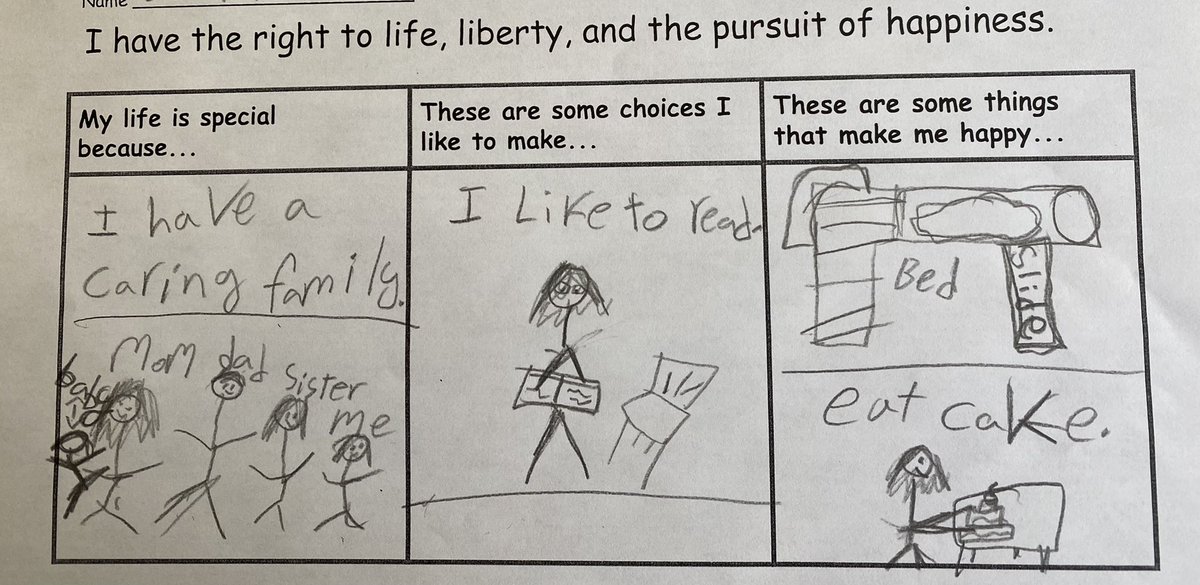 Name
I have the right to life, liberty, and the pursuit of happiness.
My life is special
because...
I have a
caring family.
Mom dad
sister
me
These are some choices I
like to make...
I Like to read.
These are some things
that make me happy...
Bed
Slide
eat cake.